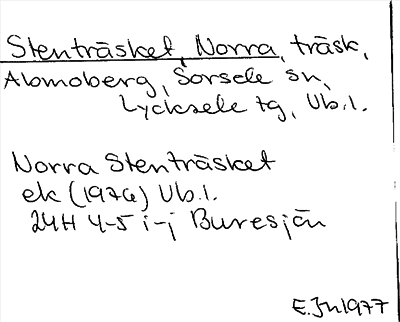 Stenträsket, Norra, träsk,
Abmoberg, Sorsele sn,
Lycksele tg, Vb.l.
Norra Stenträsket
ek (1976) Vb.l.
24H 4-5 i-j Buresjön
E.Jn1977